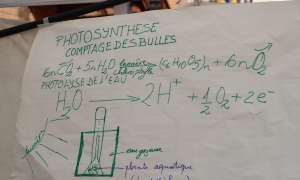 PHOTOSYNTHESE
COMPTAGE DES BULLES
6nCO2 + 5nH2O lumière chlorophylle (C6H10O5)n + 6nO2
PHOTOLYSE DE L'EAU
H2O → 2H+ + 1/2 O2 + 2e-
lumière
eau gazeuse
plante aquatique